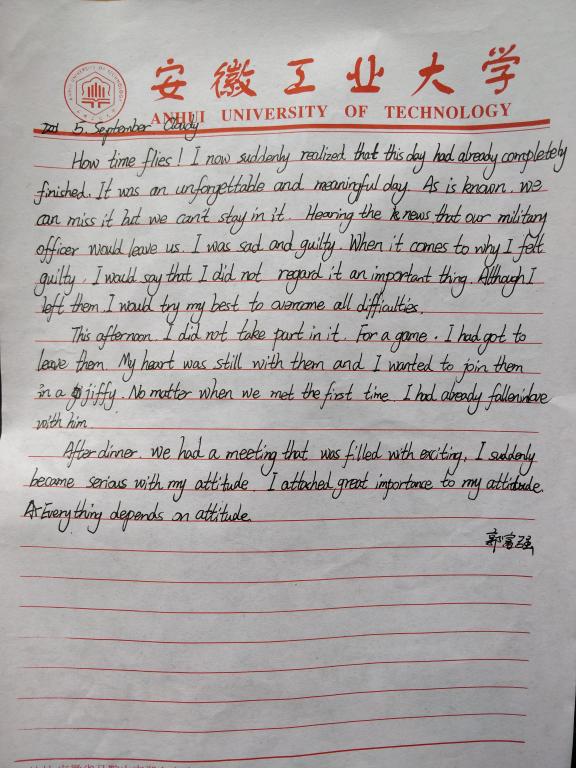 安徽工业大学
ANHUI UNIVERSITY OF TECHNOLOGY
5. September Cloudy
How time flies! I now suddenly realized that this day had already completely
finished. It was an unforgettable and meaningful day. As is known, we
can miss it but we can't stay in it. Hearing the news that our military
officer would leave us. I was sad and guilty. When it comes to why I felt
guilty, I would say that I did not regard it an important thing. Although I
left them. I would try my best to overcome all difficulties.
This afternoon, I did not take part in it. For a game. I had got to
leave them. My heart was still with them and I wanted to join them
in a jiffy. No matter when we met the first time. I had already fallen in love
with him.
After dinner, we had a meeting that was filled with exciting, I suddenly
became serious with my attitude. I attached great importance to my attitude.
Everything depends on attitude.
郭富强